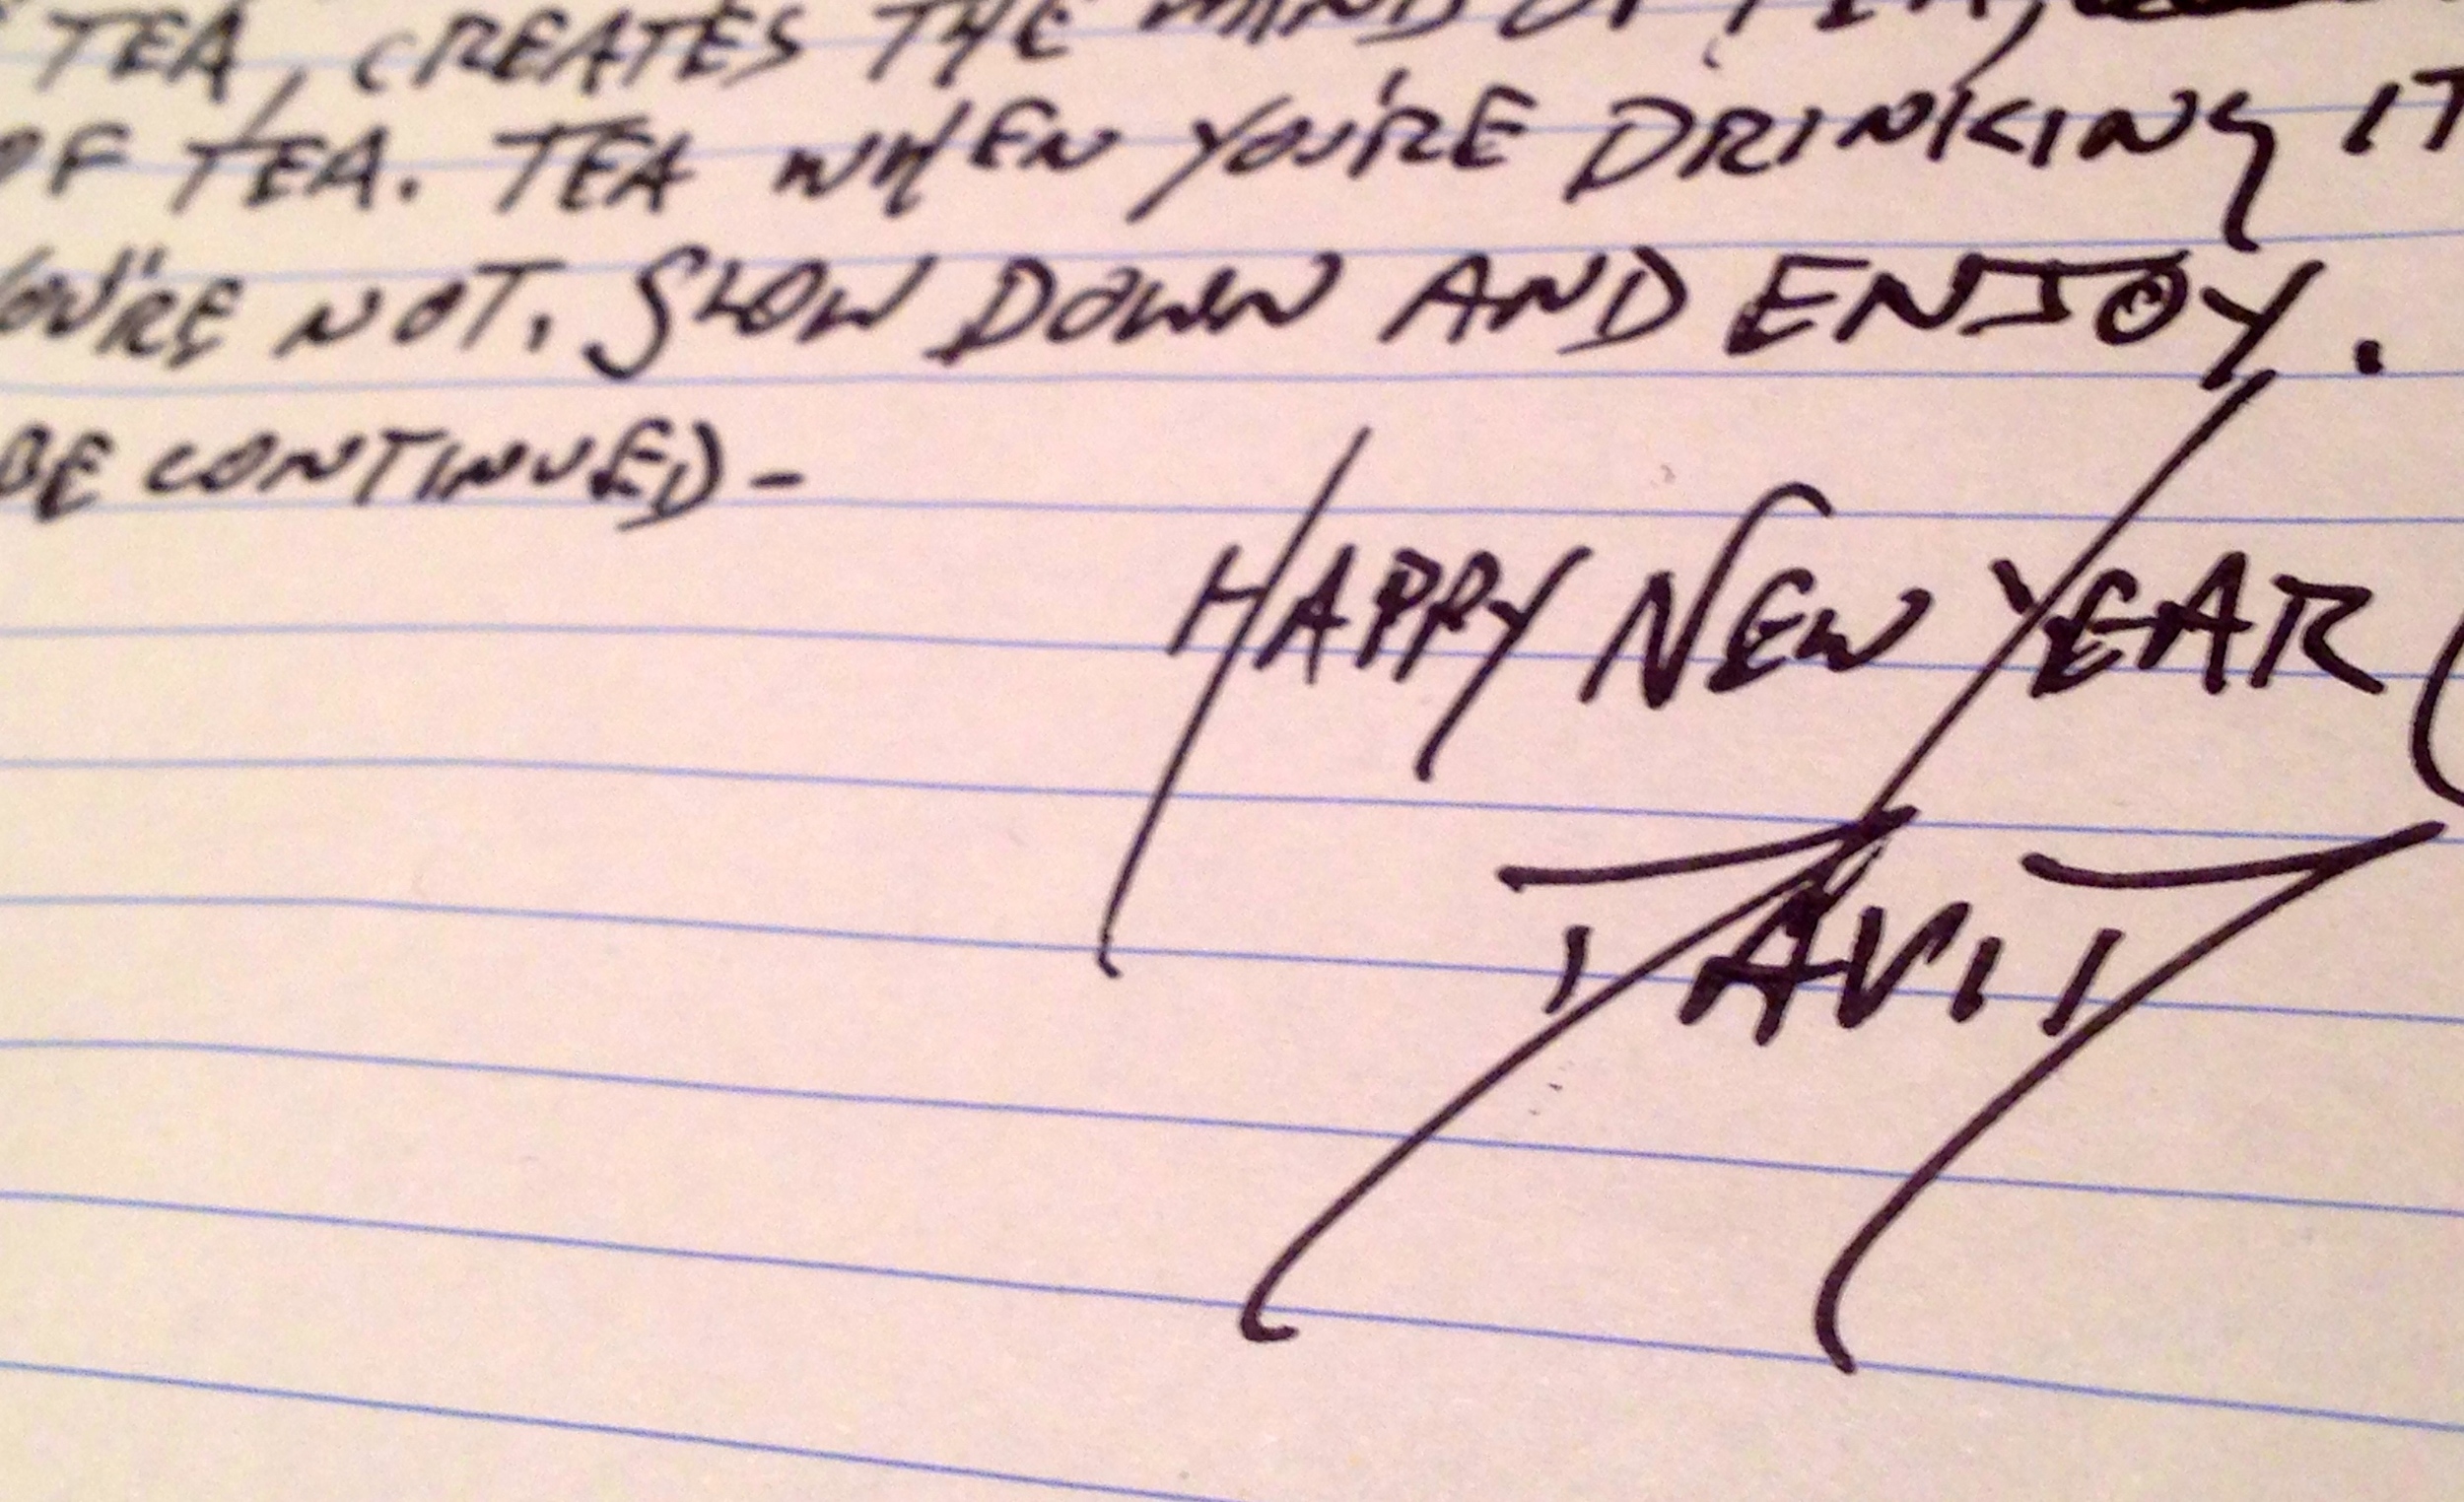 TEA, CREATES THE MIND OF TEA,
OF TEA. TEA WHEN YOU'RE DRINKING IT
YOU'RE NOT. SLOW DOWN AND ENJOY.
BE CONTINUED-
HAPPY NEW YEAR
DAVID